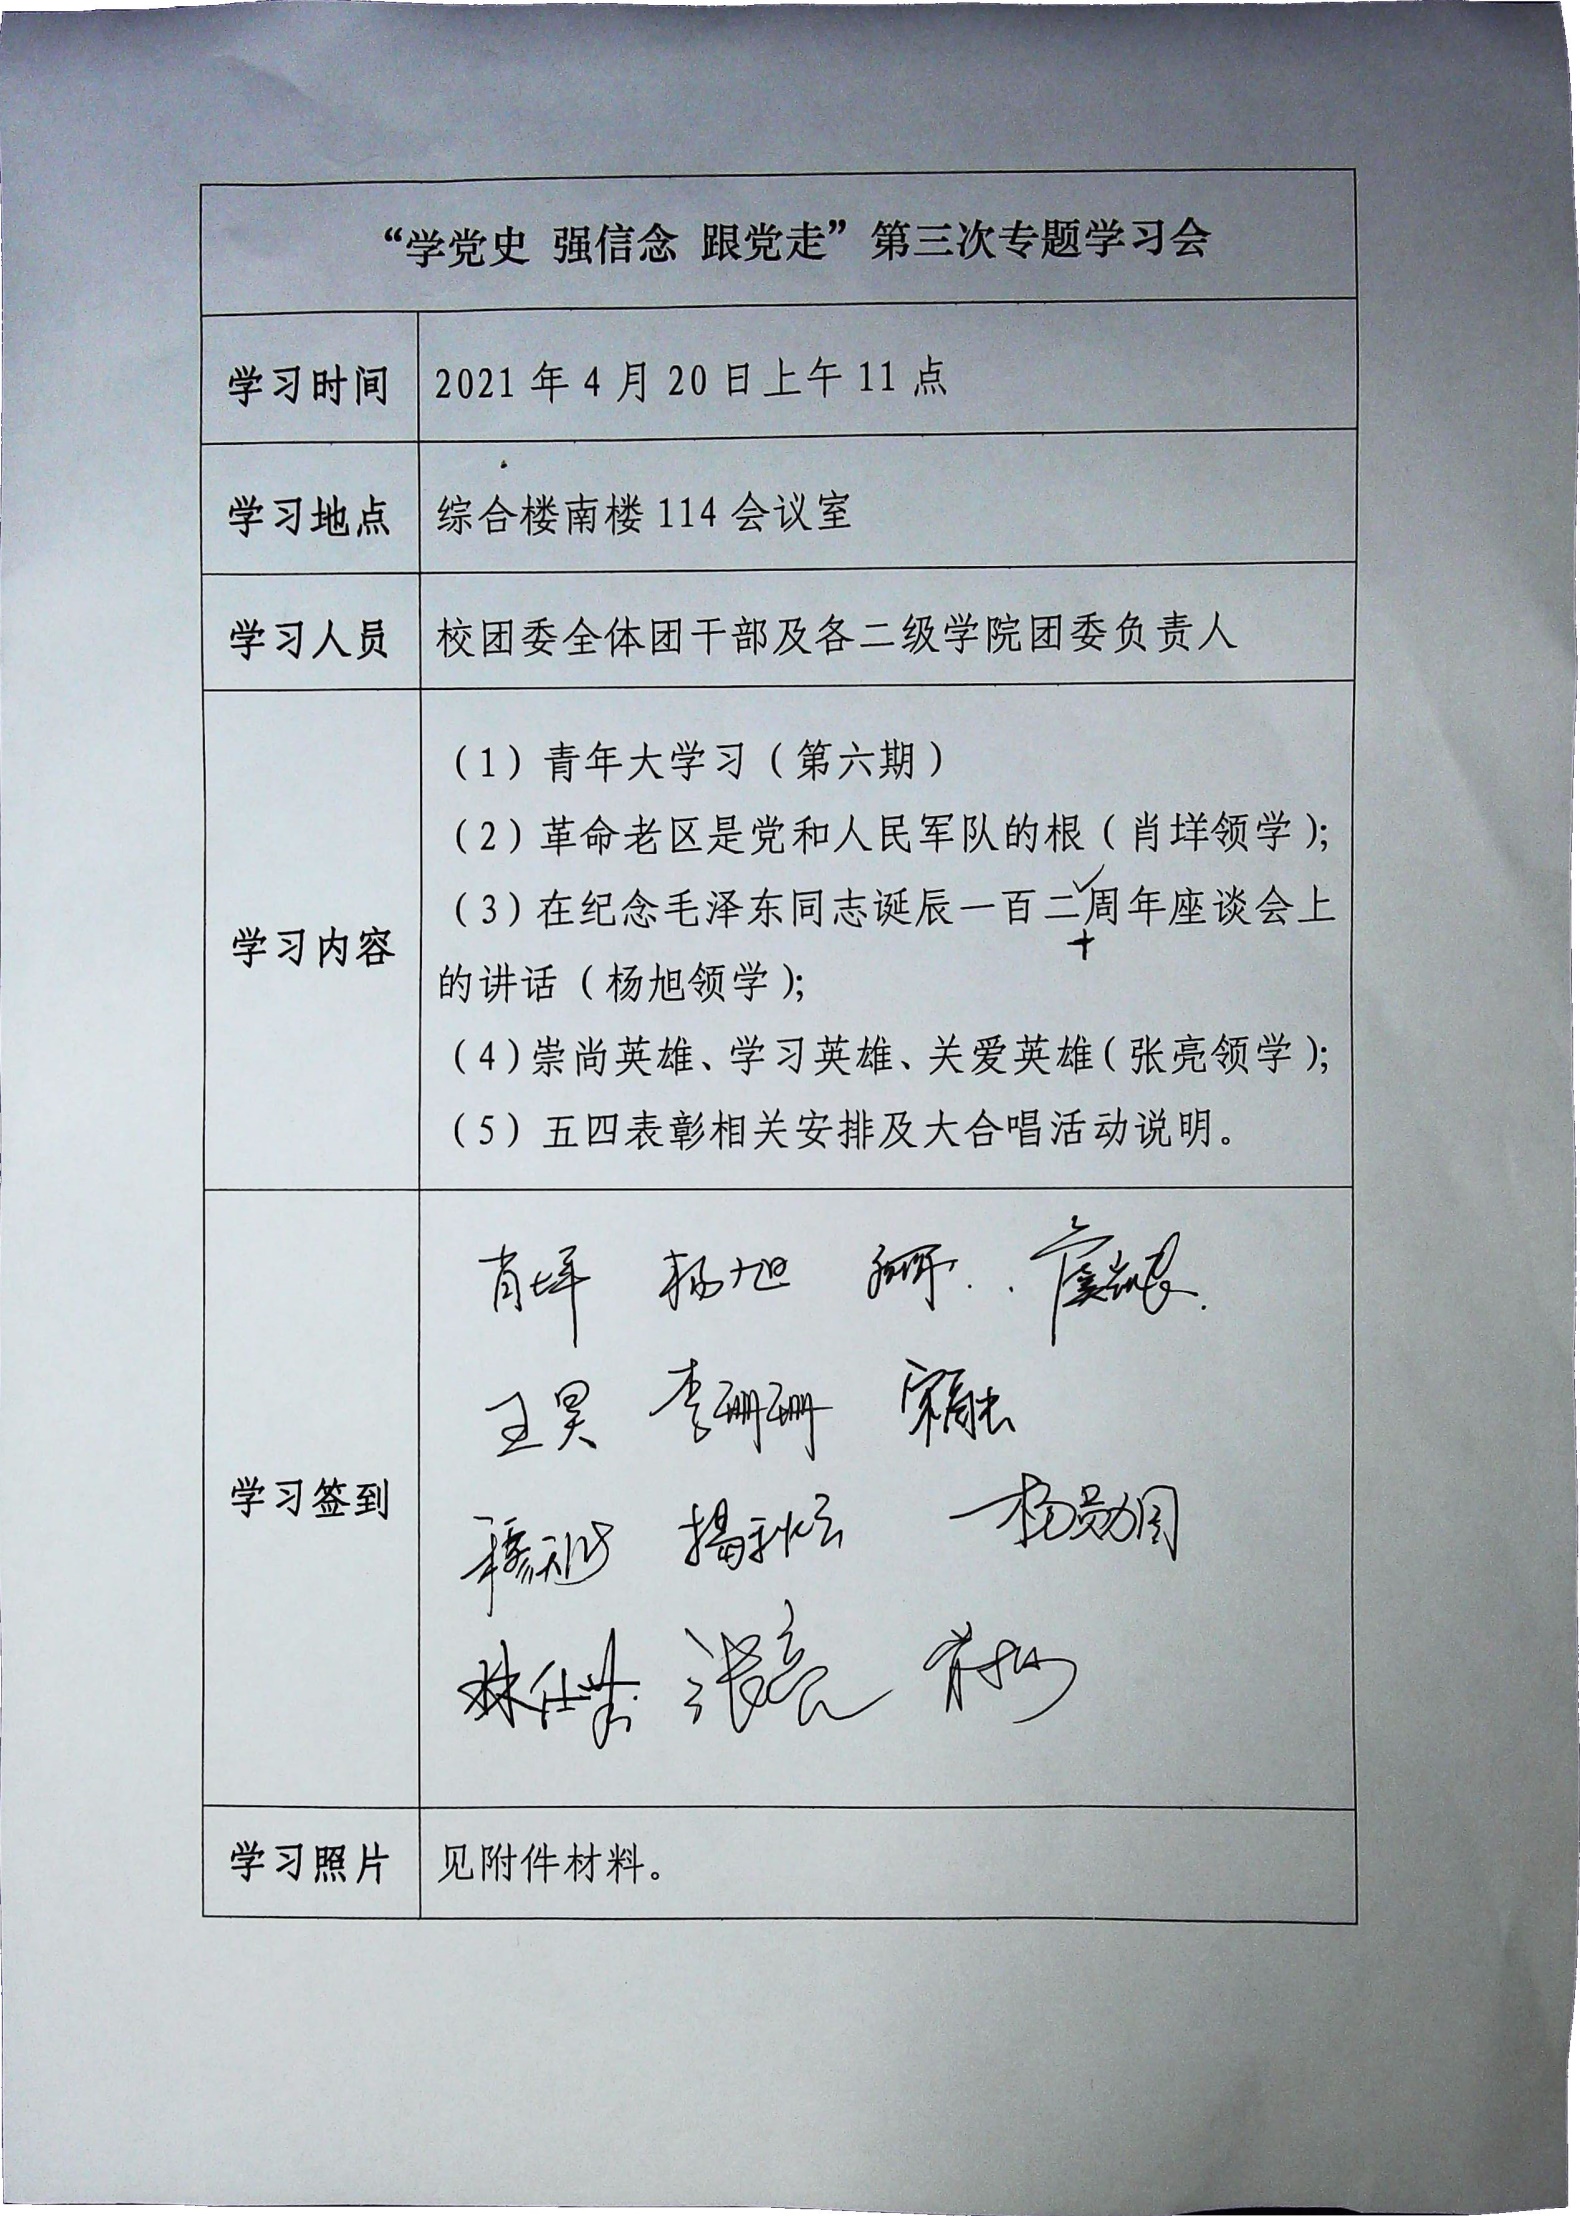 “学党史 强信念 跟党走”第三次专题学习会
学习时间 2021 年 4 月 20 日上午 11 点
学习地点 综合楼南楼 114 会议室
学习人员 校团委全体团干部及各二级学院团委负责人
学习内容
（1）青年大学习（第六期）
（2）革命老区是党和人民军队的根（肖垟领学）；
（3）在纪念毛泽东同志诞辰一百二周年座谈会上
十
的讲话（杨旭领学）；
（4）崇尚英雄、学习英雄、关爱英雄（张亮领学）；
（5）五四表彰相关安排及大合唱活动说明。
学习签到
肖垟 杨旭
王昊 李珊珊 宋融
杨勋国
张亮
学习照片 见附件材料。